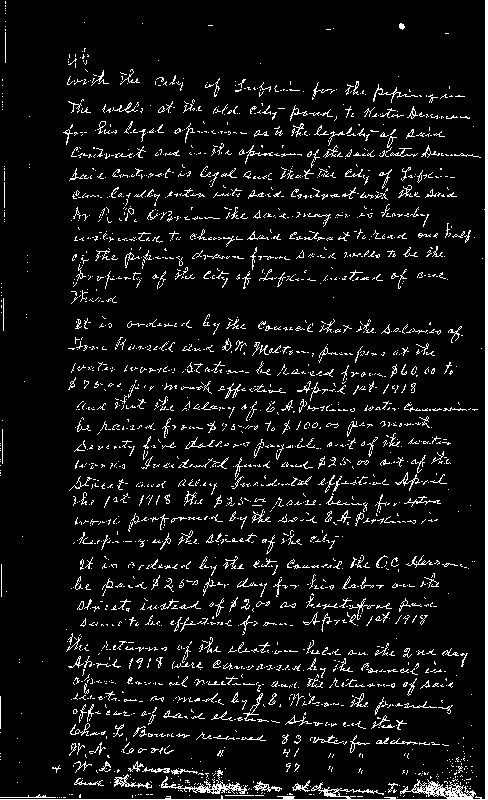 46
with the City of Lufkin for the piping in
the wells at the old City pond, to Kester Denman
for his legal opinion as to the legality of said
Contract and in the opinion of the said Kester Denman
said contract is legal and that the City of Lufkin
can legally enter into said Contract with the said
Mr R. P. O'Brian the said mayor is hereby
instructed to change said Contract to read one half
of the piping drawn from said wells to be the
property of the City of Lufkin instead of one
third
It is ordered by the council that the salaries of
Tom Hassell and D.W. Melton, pumpers at the
water works station be raised from $60.00 to
$70.00 per month effective April 1st 1918
and that the salary of E.A. Perkins water Commissioner
be raised from $75.00 to $100.00 per month
seventy five dollars payable out of the water
works Incidental fund and $25.00 out of the
street and alley Incidental effective April
the 1st 1918 the $25.00 raise being for extra
work performed by the said E.A. Perkins in
keeping up the street of the city
It is ordered by the city council the O.C.
be paid $2.50 per day for his labor on the
streets instead of $2.00 as heretofore paid
same to be effective from April 1st 1918
The returns of the election held on the 2nd day
April 1918 were canvassed by the Council in
open council meeting and the returns of said
election as made by J.E. Wilson the presiding
officer of said election showed that
Chas. L. Bonner received 83 votes for alderman
W.N. Cook " 41 " " "
+ W.D. " 97 " " "
and there two aldermen to